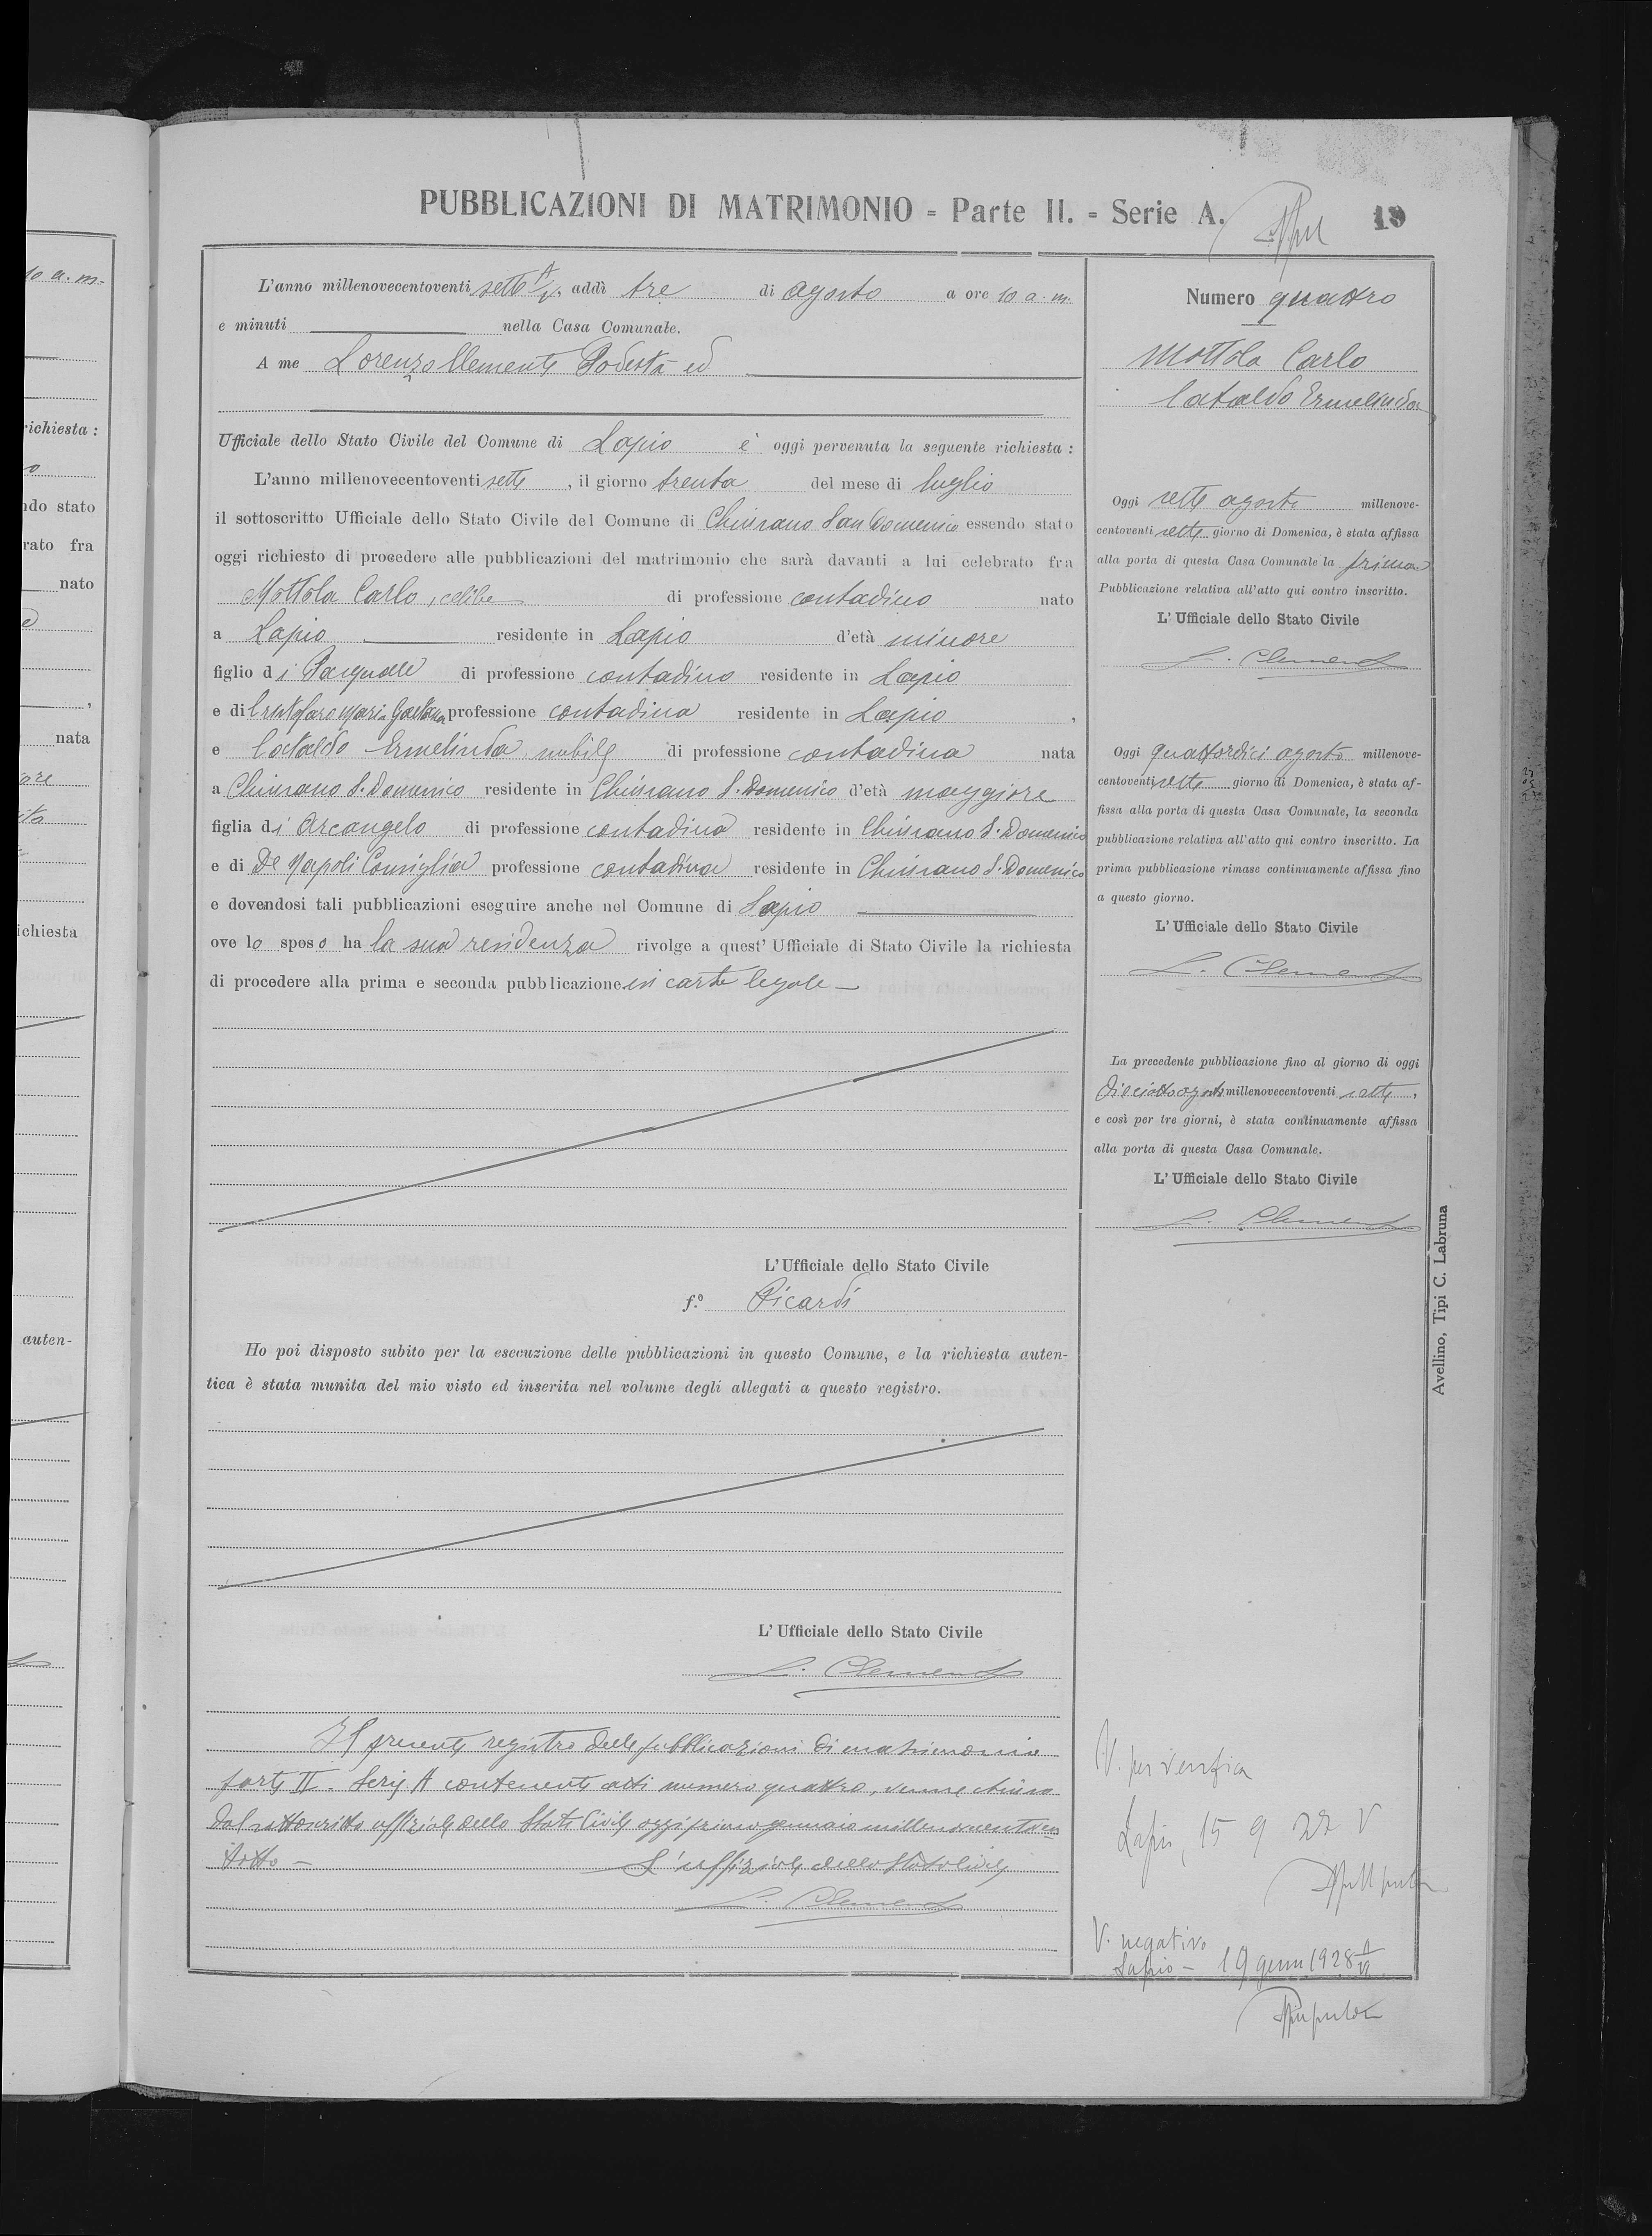 10 a. m.
richiesta :
ndo stato
rato fra
nato
,
nata
ore
ichiesta
auten-
PUBBLICAZIONI DI MATRIMONIO = Parte II. = Serie A.
19
L'anno millenovecentoventi sette A/V, addì tre di agosto a ore 10 a. m.
e minuti nella Casa Comunale.
A me Lorenzo Clemente Podestà ed
Ufficiale dello Stato Civile del Comune di Lapio è oggi pervenuta la seguente richiesta :
L'anno millenovecentoventi sette , il giorno trenta del mese di luglio
il sottoscritto Ufficiale dello Stato Civile del Comune di Chiusano San Domenico essendo stato
oggi richiesto di procedere alle pubblicazioni del matrimonio che sarà davanti a lui celebrato fra
Mottola Carlo, celibe di professione contadino nato
a Lapio residente in Lapio d'età minore
figlio di Pasquale di professione contadino residente in Lapio
e di Cristofaro Maria Gaetana professione contadina residente in Lapio ,
e Cataldo Ermelinda nubile di professione contadina nata
a Chiusano S. Domenico residente in Chiusano S. Domenico d'età maggiore
figlia di Arcangelo di professione contadino residente in Chiusano S. Domenico
e di De Napoli Consiglia professione contadina residente in Chiusano S. Domenico
e dovendosi tali pubblicazioni eseguire anche nel Comune di Lapio
ove lo sposo ha la sua residenza rivolge a quest' Ufficiale di Stato Civile la richiesta
di procedere alla prima e seconda pubblicazione in carta legale
L' Ufficiale dello Stato Civile
f.º Picardi
Ho poi disposto subito per la esecuzione delle pubblicazioni in questo Comune, e la richiesta auten-
tica è stata munita del mio visto ed inserita nel volume degli allegati a questo registro.
L' Ufficiale dello Stato Civile
L. Clemente
Il presente registro delle pubblicazioni di matrimonio
parte II. Serie A contenente atti numero quattro, venne chiuso
dal sottoscritto uffiziale dello Stato Civile oggi primo gennaio millenovecentoven
totto
L'uffiziale dello Stato Civile
L. Clemente
Numero quattro
Mottola Carlo
Cataldo Ermelinda
Oggi sette agosto millenove-
centoventi sette giorno di Domenica, è stata affissa
alla porta di questa Casa Comunale la prima
Pubblicazione relativa all'atto qui contro inscritto.
L' Ufficiale dello Stato Civile
L. Clemente
Oggi quattordici agosto millenove-
centoventi sette giorno di Domenica, è stata af-
fissa alla porta di questa Casa Comunale, la seconda
pubblicazione relativa all'atto qui contro inscritto. La
prima pubblicazione rimase continuamente affissa fino
a questo giorno.
L' Ufficiale dello Stato Civile
L. Clemente
La precedente pubblicazione fino al giorno di oggi
diciotto agosto millenovecentoventi sette ,
e così per tre giorni, è stata continuamente affissa
alla porta di questa Casa Comunale.
L' Ufficiale dello Stato Civile
L. Clemente
V. per verifica
Lapio, 15 9 27 V
V. negativo
Lapio - 19 genn 1928 A/VI
Avellino, Tipi C. Labruna